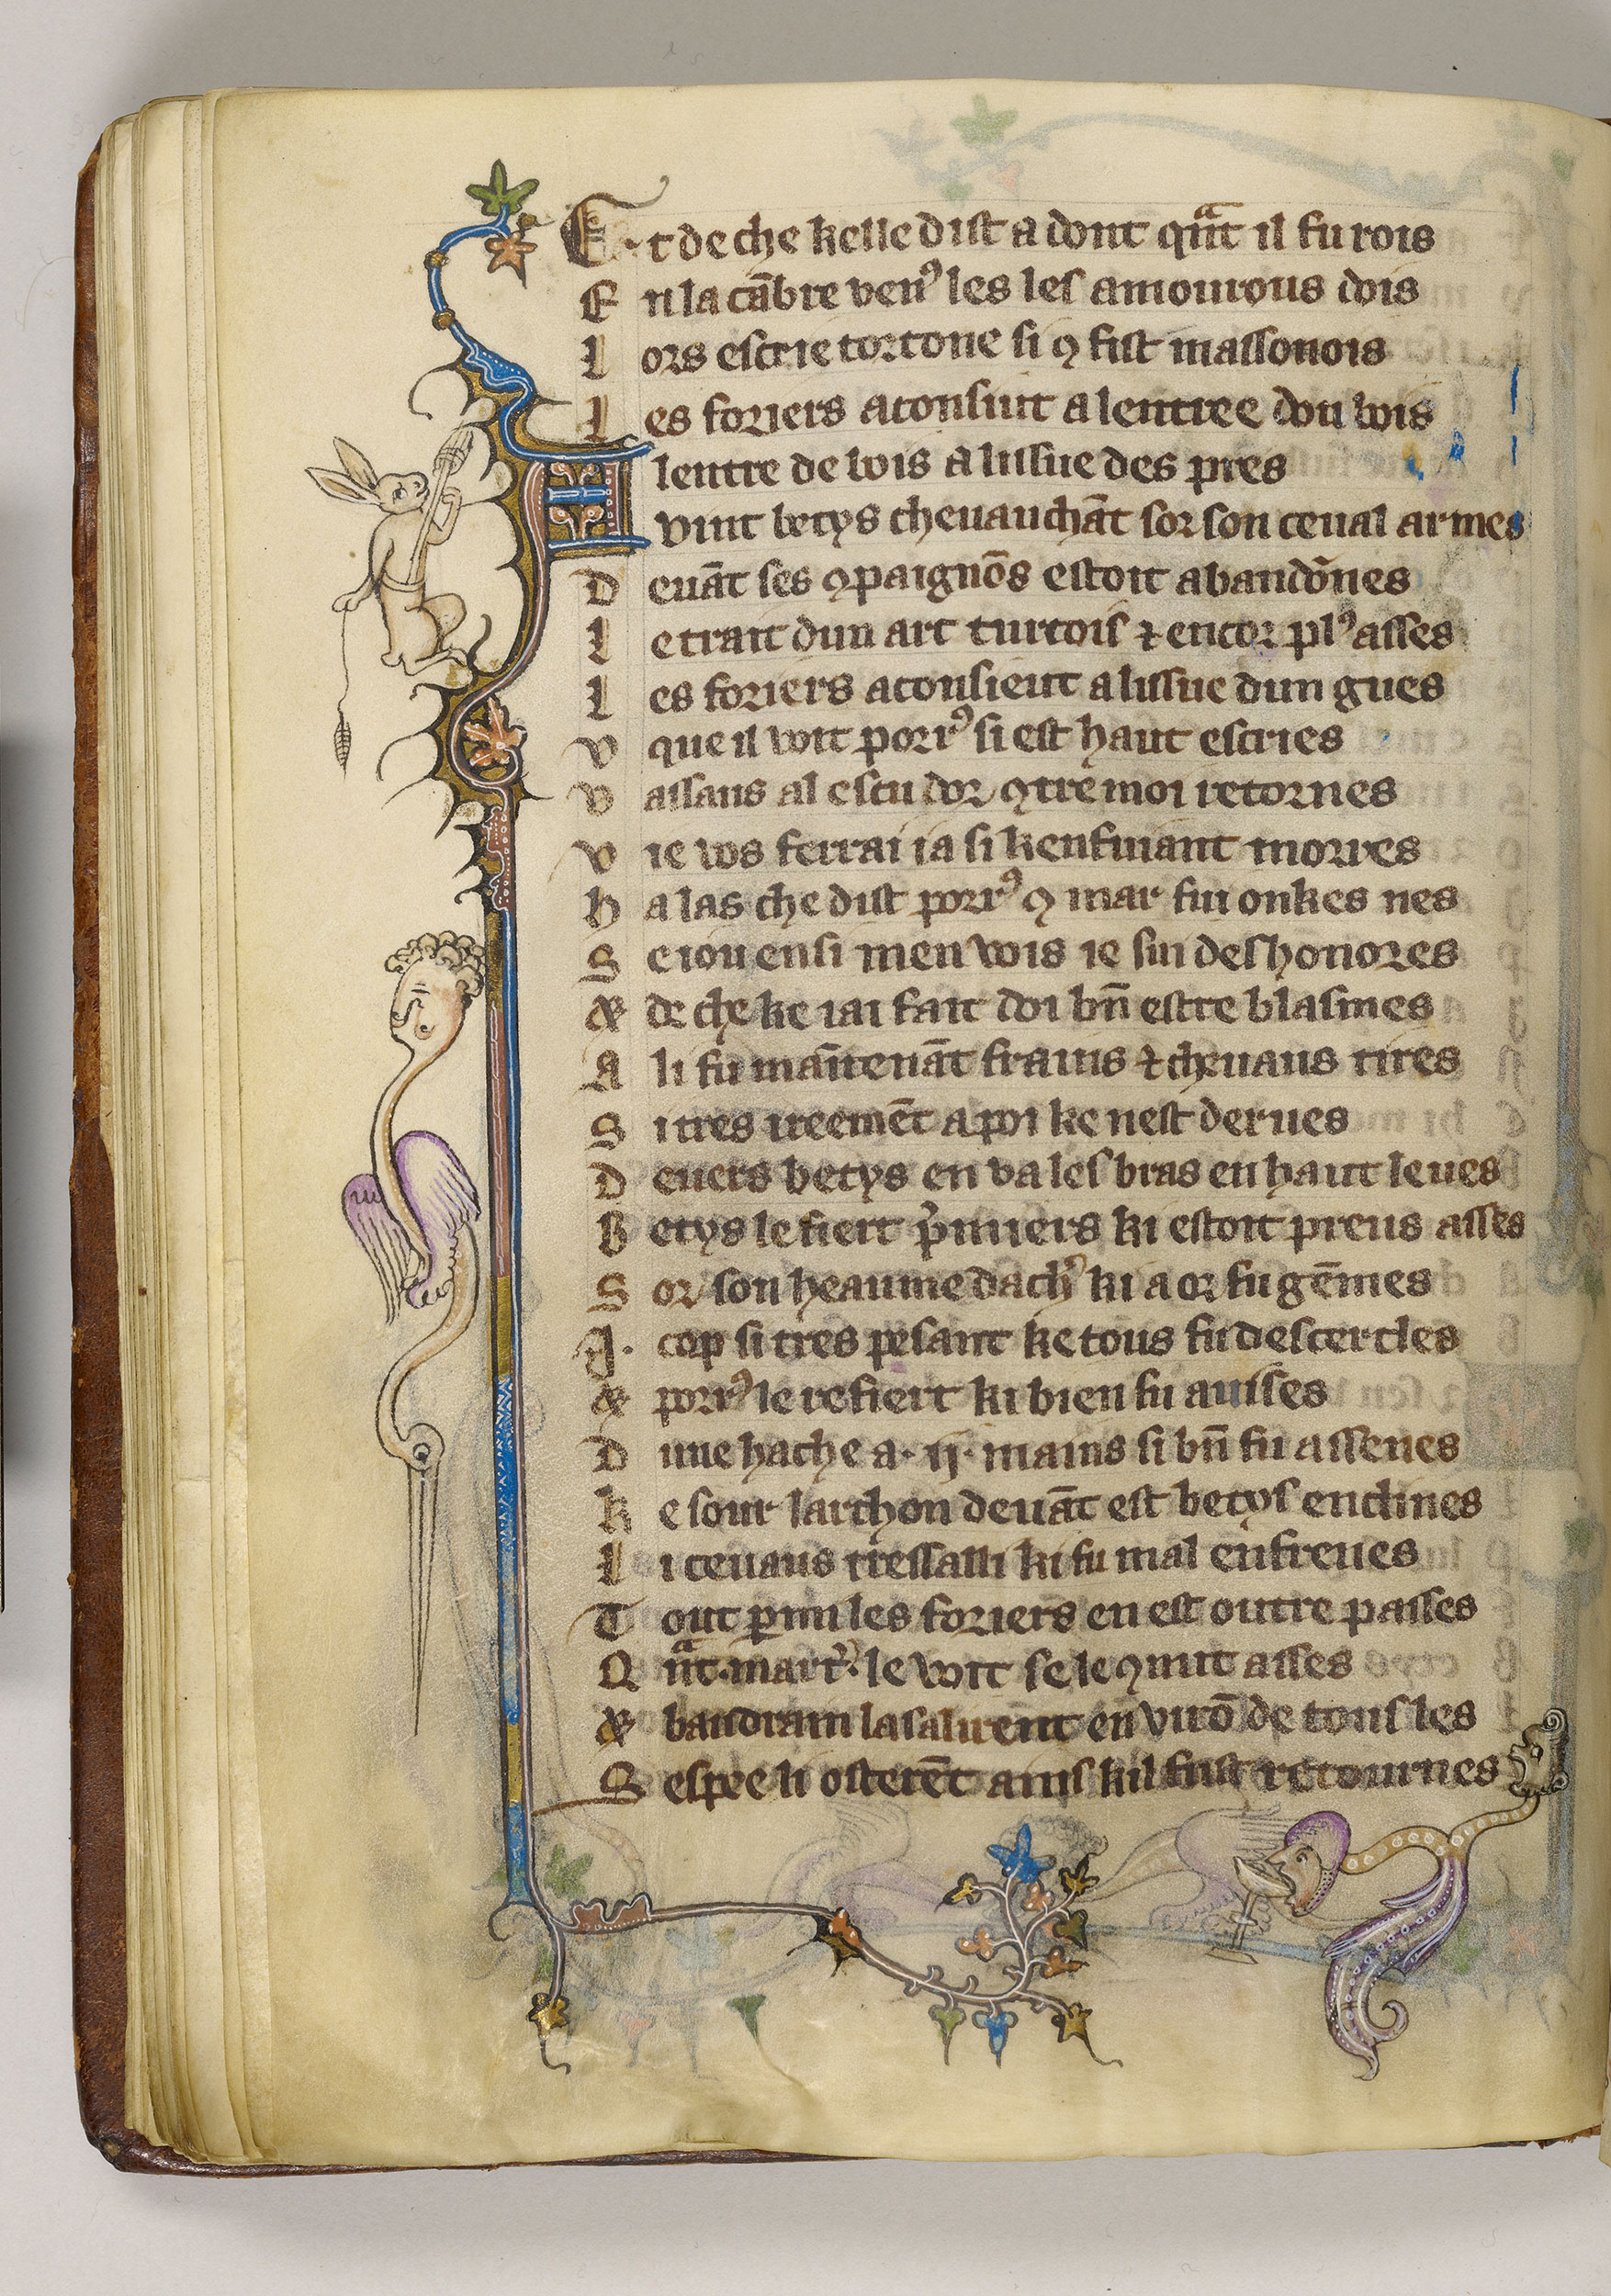 E·t de che kelle dist adont qᷓnt il fu rois
E n la cābre venꝰ les les amourous dois
L ors escrie tortone si ꝯ fist massonois
L es foriers aconsiut a lentree dou bois
A lentre de bois a lissue des pres
vint betys cheuauchāt sor son ceual armes
D euāt ses ꝯpaignōs estoit abandōnes
L e trait dun arc turcois ⁊ encor plꝰ asses
L es foriers aconsieut a lissue dun gues
V que il voit porrꝰ si est haut escries
V assaus al escu dor ꝯtre moi retornes
V ie vos ferrai ia si kenfuiant morres
H a las che dist porrꝰ ꝯ mar fui onkes nes
S e iou ensi men vois ie sui deshonores
& de che ke iai fait doi bn̄ estre blasmes
A li fu maīntenāt frains ⁊ cheuaus tires
S i tres ireemēt a poi ke nest derues
D euers betys en va les bras en haut leues
B etys le fiert p̓miers ki estoit preus asses
S or son heaume dach̓ ki a or fu gēmes
J· cop si tres pesant ke tous fu descercles
& porrꝰ le refiert ki bien fu auises
D une hache a· ij· mains si bn̄ fu assenes
K e sour larchon deuāt est betys enclines
L i ceuaus tressalli ki fu mal enfrenes
T out ꝑmi les foriers en est outre passes
Q ᷓnt· mart̓· le voit se le ꝯnut asses
& baudrain lasalirent en virō de tous les
S espee li osterēt ains kil fust retournes